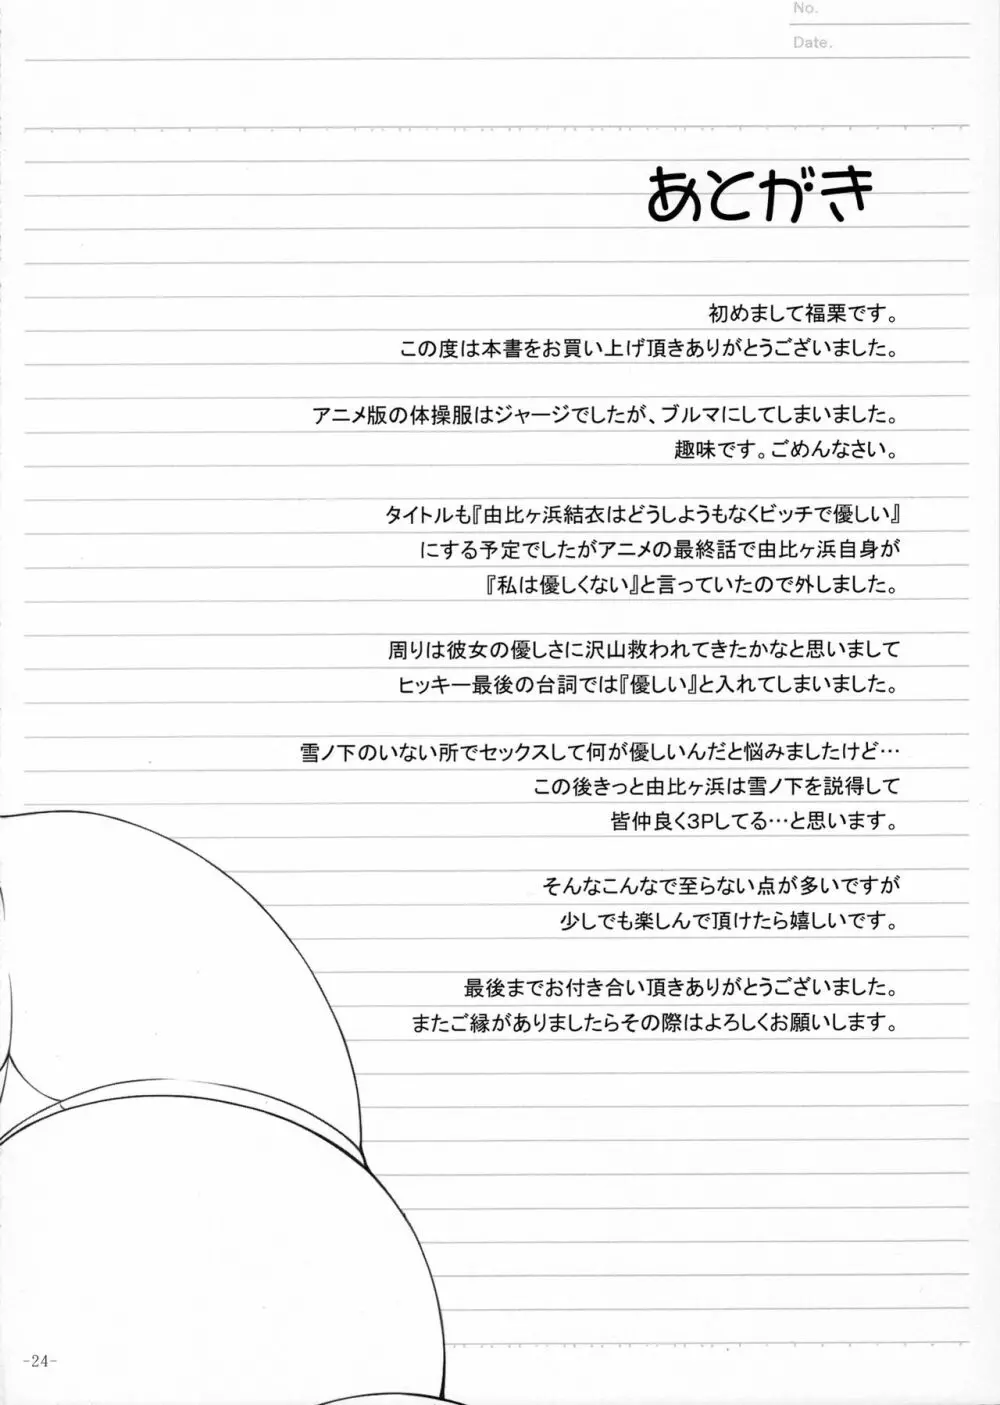 No.
Date.
あとがき
初めまして福栗です。
この度は本書をお買い上げ頂きありがとうございました。
アニメ版の体操服はジャージでしたが、ブルマにしてしまいました。
趣味です。ごめんなさい。
タイトルも『由比ヶ浜結衣はどうしようもなくビッチで優しい』
にする予定でしたがアニメの最終話で由比ヶ浜自身が
『私は優しくない』と言っていたので外しました。
周りは彼女の優しさに沢山救われてきたかなと思いまして
ヒッキー最後の台詞では『優しい』と入れてしまいました。
雪ノ下のいない所でセックスして何が優しいんだと悩みましたけど…
この後きっと由比ヶ浜は雪ノ下を説得して
皆仲良く3Pしてる…と思います。
そんなこんなで至らない点が多いですが
少しでも楽しんで頂けたら嬉しいです。
最後までお付き合い頂きありがとうございました。
またご縁がありましたらその際はよろしくお願いします。
-24-